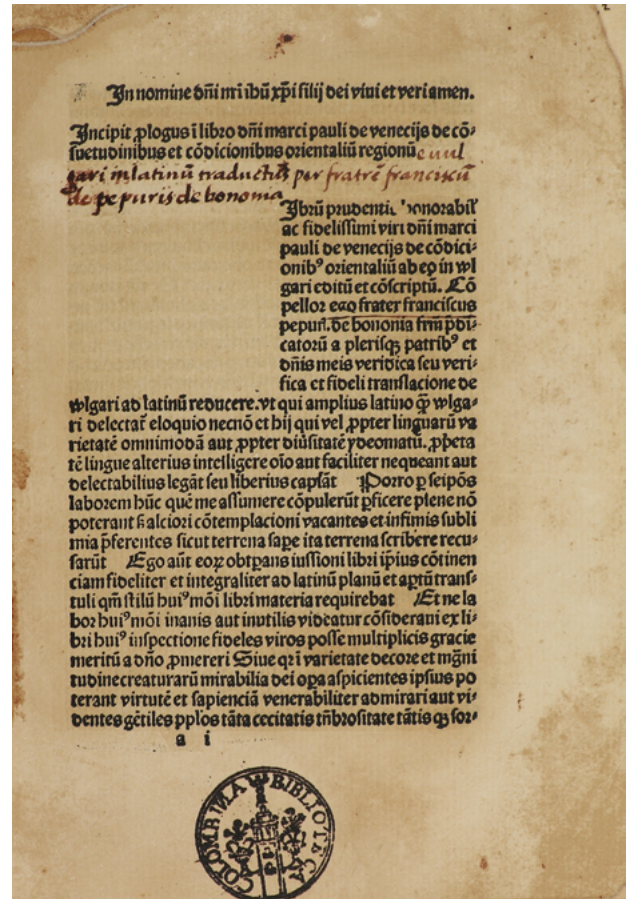 2
In nomine dñi nr̃i ihũ xp̃i filij dei viui et veri amen.
Incipit ꝓlogus ĩ libro dñi marci pauli de venecijs de cõ⸗
suetudinibus et cõdicionibus orientaliũ regionũ e uul
gari in latinũ traductus per fratrẽ franciscũ
de pepuris de bononia
Ibrũ prudentis honorabil
ac fidelissimi viri dñi marci
pauli de venecijs de cõdici⸗
onibꝰ orientaliũ ab eo in wl
gari editũ et cõscriptũ. Cõ
pellor ego frater franciscus
pepuri. de bononia frm̃ p̃di⸗
catorũ a plerisqꝫ patribꝰ et
dñis meis veridica seu veri⸗
fica et fideli translacione de
wlgari ad latinũ reducere. vt qui amplius latino q̃ꝫ wlga⸗
ri delectat̃ eloquio necnõ et hij qui vel ꝓpter linguarũ va
rietatẽ omnimodã aut ꝓpter diũsitatẽ ydeomatũ. ꝓp̃eta
tẽ lingue alterius intelligere oĩo aut faciliter nequeant aut
delectabilius legãt seu liberius capiãt Porro ꝑ seip̃os
laborem hũc quẽ me assumere cõpulerũt ꝑficere plene nõ
poterant sꝫ alciori cõtemplacioni vacantes et infimis subli
mia p̃ferentes sicut terrena sape ita terrena scribere recu⸗
sarũt Ego aũt eoꝝ obtꝑans iussioni libri ip̃ius cõtinen
ciam fideliter et integraliter ad latinũ planũ et aꝑtũ trans⸗
tuli qm̃ stilũ huiꝰmõi libri materia requirebat Et ne la
bor huiꝰmõi inanis aut inutilis videatur cõsideraui ex li⸗
bri huiꝰ inspectione fideles viros posse multiplicis gracie
meritũ a dño ꝓmereri Siue qr̃ ĩ varietate decore et mg̃ni
tudine creaturarũ mirabilia dei oꝑa aspicientes ipsius po
terant virtutẽ et sapienciã venerabiliter admirari aut vi⸗
dentes gẽtiles pp̃los tãta cecitatis tñbrositate tãtis qꝫ sor⸗
a i
COLOMBINA BIBLIOTECA